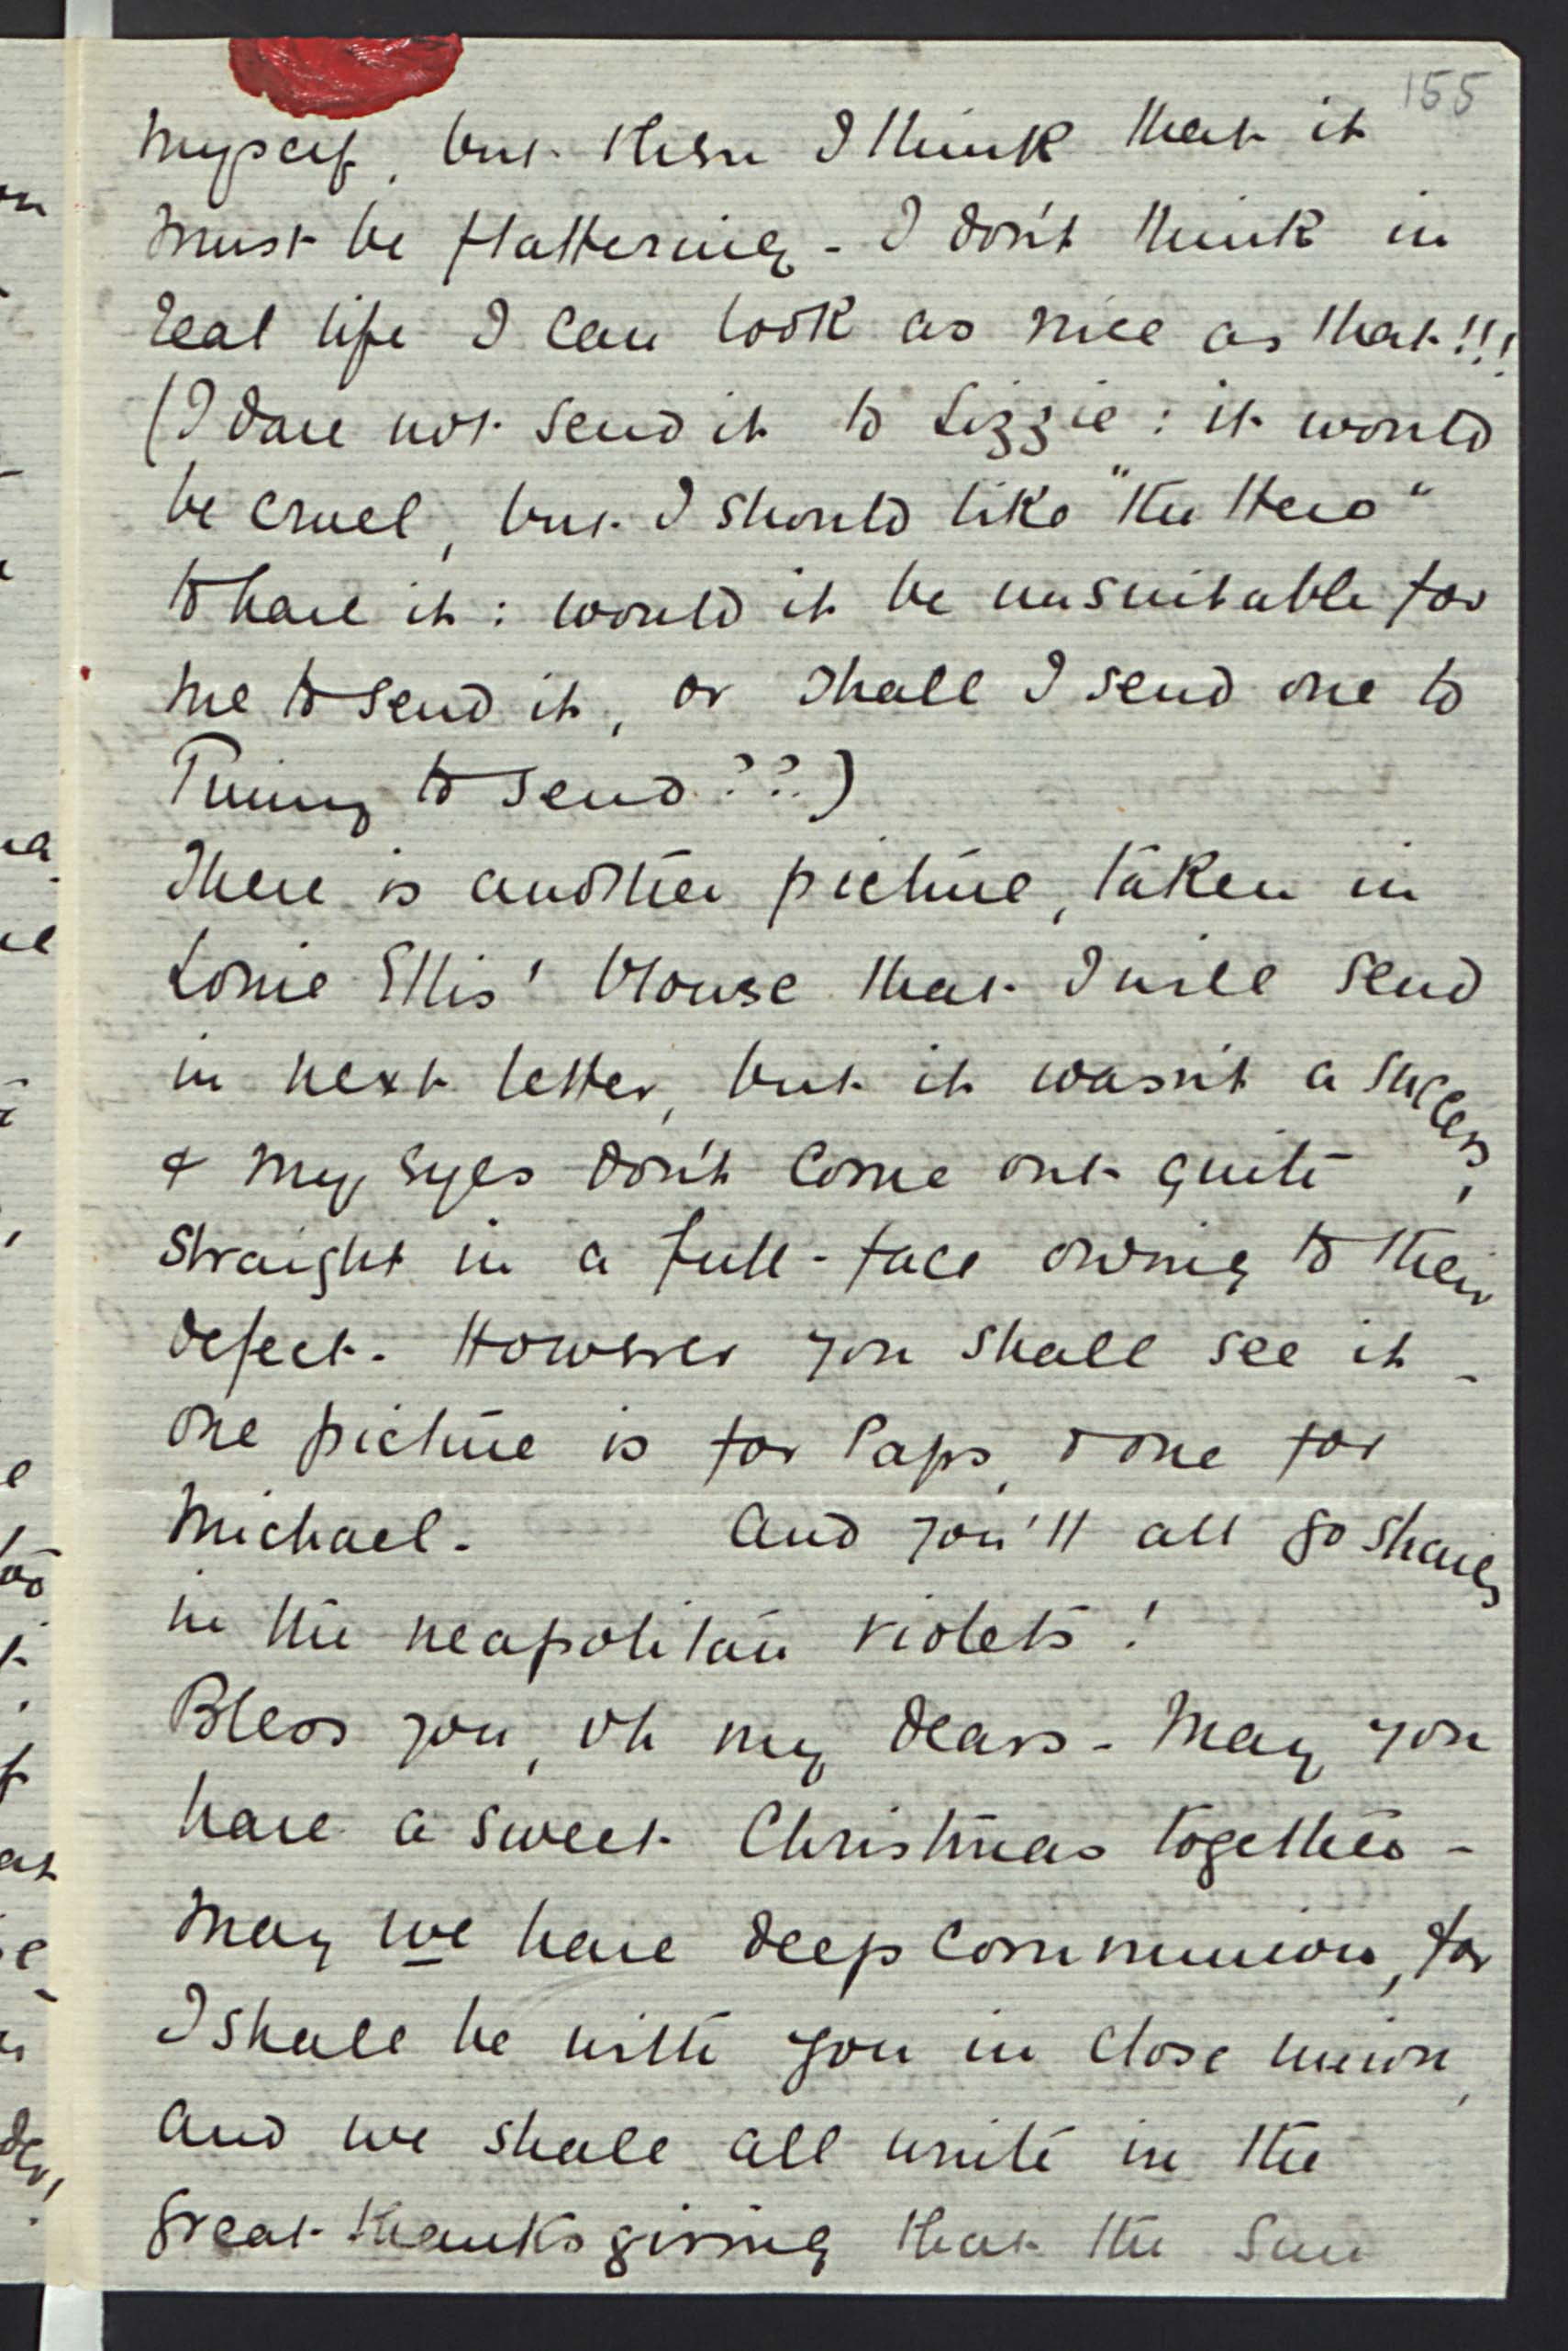 155
myself, but then I think that it
must be flattering - I don't think in
real life I can look as nice as that!!!
(I dare not send it to Lizzie: it would
be cruel, but I should like "the Hero"
to have it: would it be unsuitable for
me to send it, or shall I send one to
to send???)
There is another picture, taken in
Ellis' blouse that I will send
in next letter, but it wasn't a success,
& my eyes don't come out quite
straight in a full-face owing to their
defect. However you shall see it -
one picture is for Paps, & one for
Michael. And you'll all go shares
in the neapolitan violets!
Bless you, oh my dears - May you
have a sweet Christmas together -
May we have deep communion, for
I shall be with you in close union,
and we shall all unite in the
great thanksgiving that the Sun